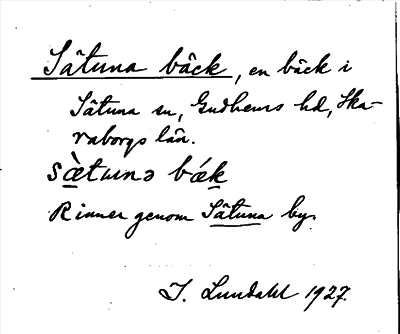 Sätuna bäck, en bäck i
Sätuna sn, Gudhems hd, Ska-
raborgs län.
sæ̀tɯnə bǽk
Rinner genom Sätuna by.
J. Lundahl 1927.